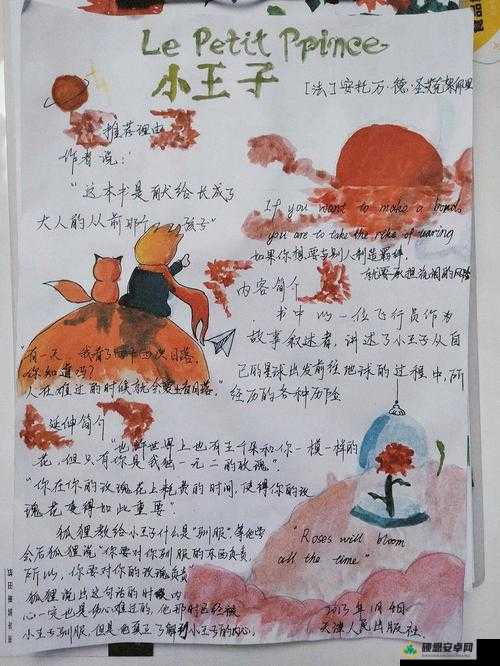 Le Petit Prince
小王子
[法]安托万·德·圣埃克苏佩里
推荐理由
作者说:
"这本书是献给长成了
大人的从前那个小孩子"
If you want to make a bond,
you are to take the risk of
如果你想要与别人制造羁绊,
就要承担流泪的风险
内容简介
书中以一位飞行员作为
故事叙述者,讲述了小王子从自
己的星球出发前往地球的过程中,所
经历的各种历险
"有一天,我看了四十四次日落,
你知道吗?
人在难过的时候就会爱上看日落。"
延伸简介
"也许世界上也有五千朵和你一模一样的
花,但只有你是我独一无二的玫瑰"
"你在你的玫瑰花上耗费的时间,使得你的玫
瑰花变得如此重要"
狐狸教给小王子什么是"驯服"
会后狐狸说"你要对你驯服的东西负责,
所以,你要对你的玫瑰负责
狐狸说出这句话的时候内
心一定也是伤心难过的,他那时已经被
小王子驯服,但是也真正了解到小王子的内心。
"Roses will bloom
all the time"
2013年1月
天津人民出版社.